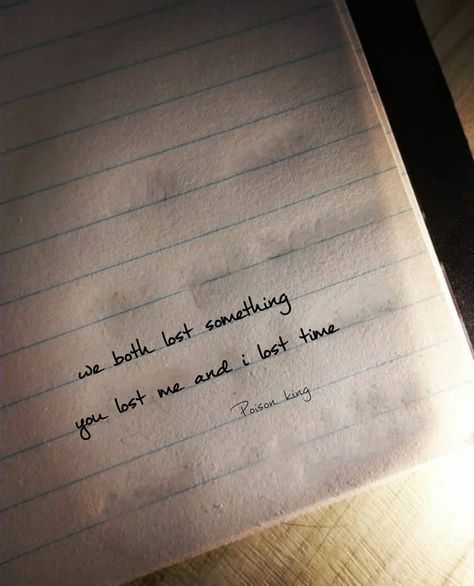 we both lost something
you lost me and i lost time
Poison king